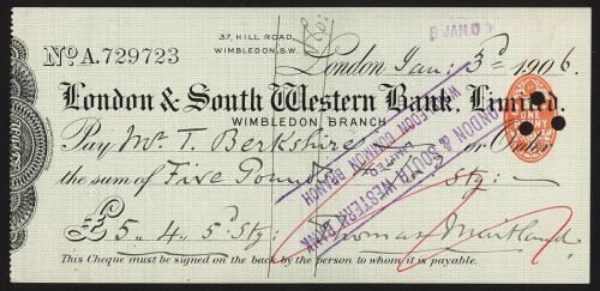 37, HILL ROAD,
WIMBLEDON, S.W.
8 JAN 0
No A.729723
London Jan: 3d 1906.
London & South Western Bank, Limited.
WIMBLEDON BRANCH
Pay Mr. T. Berkshire or Order
the sum of Five Pounds 4/5 Stg: —
£5 " 4 " 5d Stg: Thomas Maitland.
This Cheque must be signed on the back by the person to whom it is payable.
LONDON & SOUTH WESTERN BANK
LIMITED
WIMBLEDON COMMON BRANCH
ONE PENNY